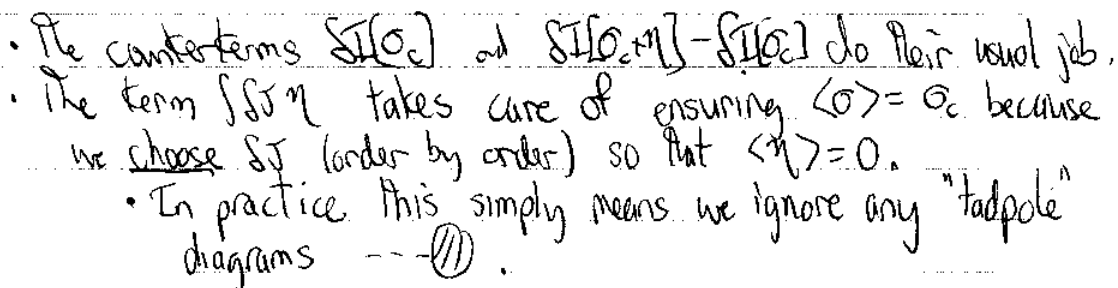 • The counterterms δI[σc] and δI[σc+η]-δI[σc] do their usual job.
• The term ∫δJη takes care of ensuring <σ>=σc because
we choose δJ (order by order) so that <η>=0.
• In practice this simply means we ignore any "tadpole"
diagrams ---.